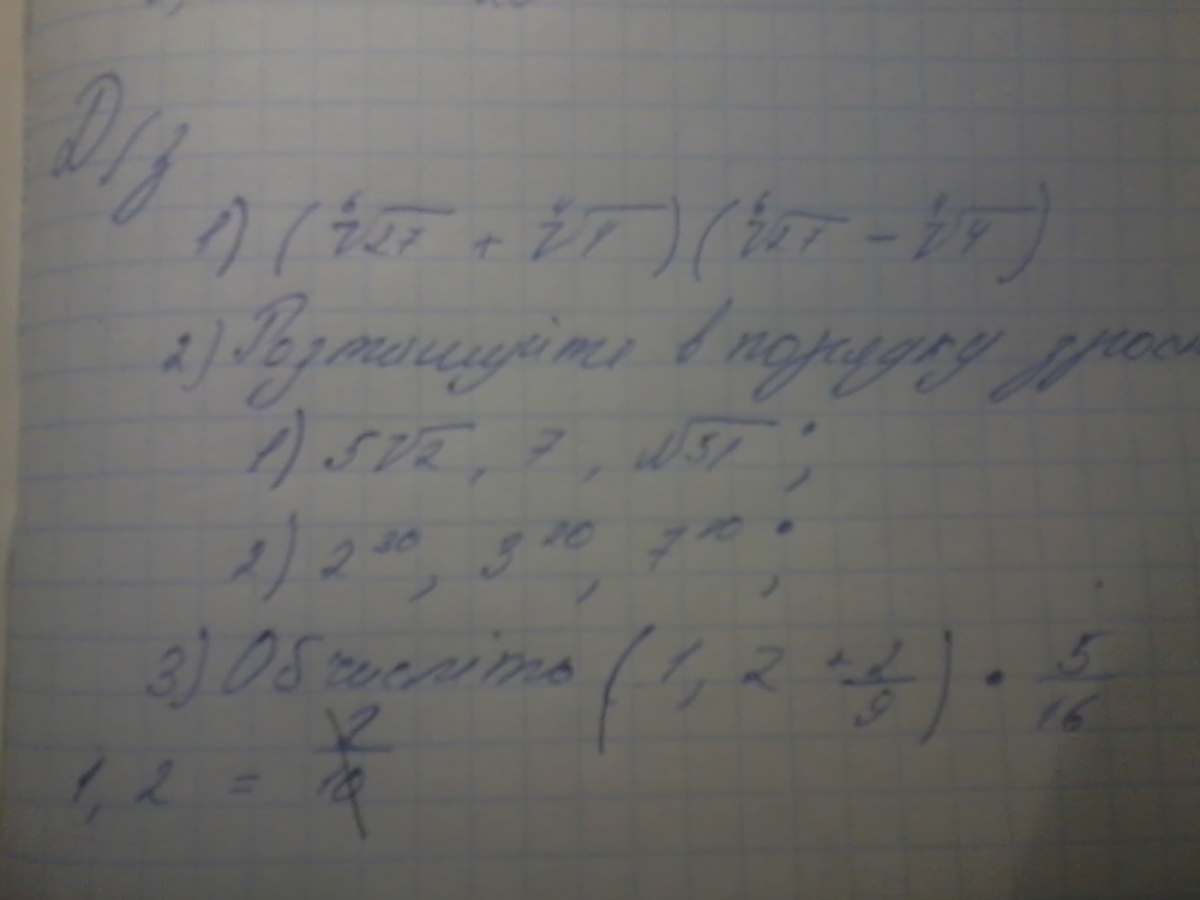 Д/з
1) (⁶√27 + ⁴√4)(⁶√27 − ⁴√4)
2) Розташуйте в порядку зрос
1) 5√2, 7, √51;
2) 2³⁰, 3²⁰, 7¹⁰;
3) Обчисліть (1,2 + 2/9) • 5/16
1,2 =